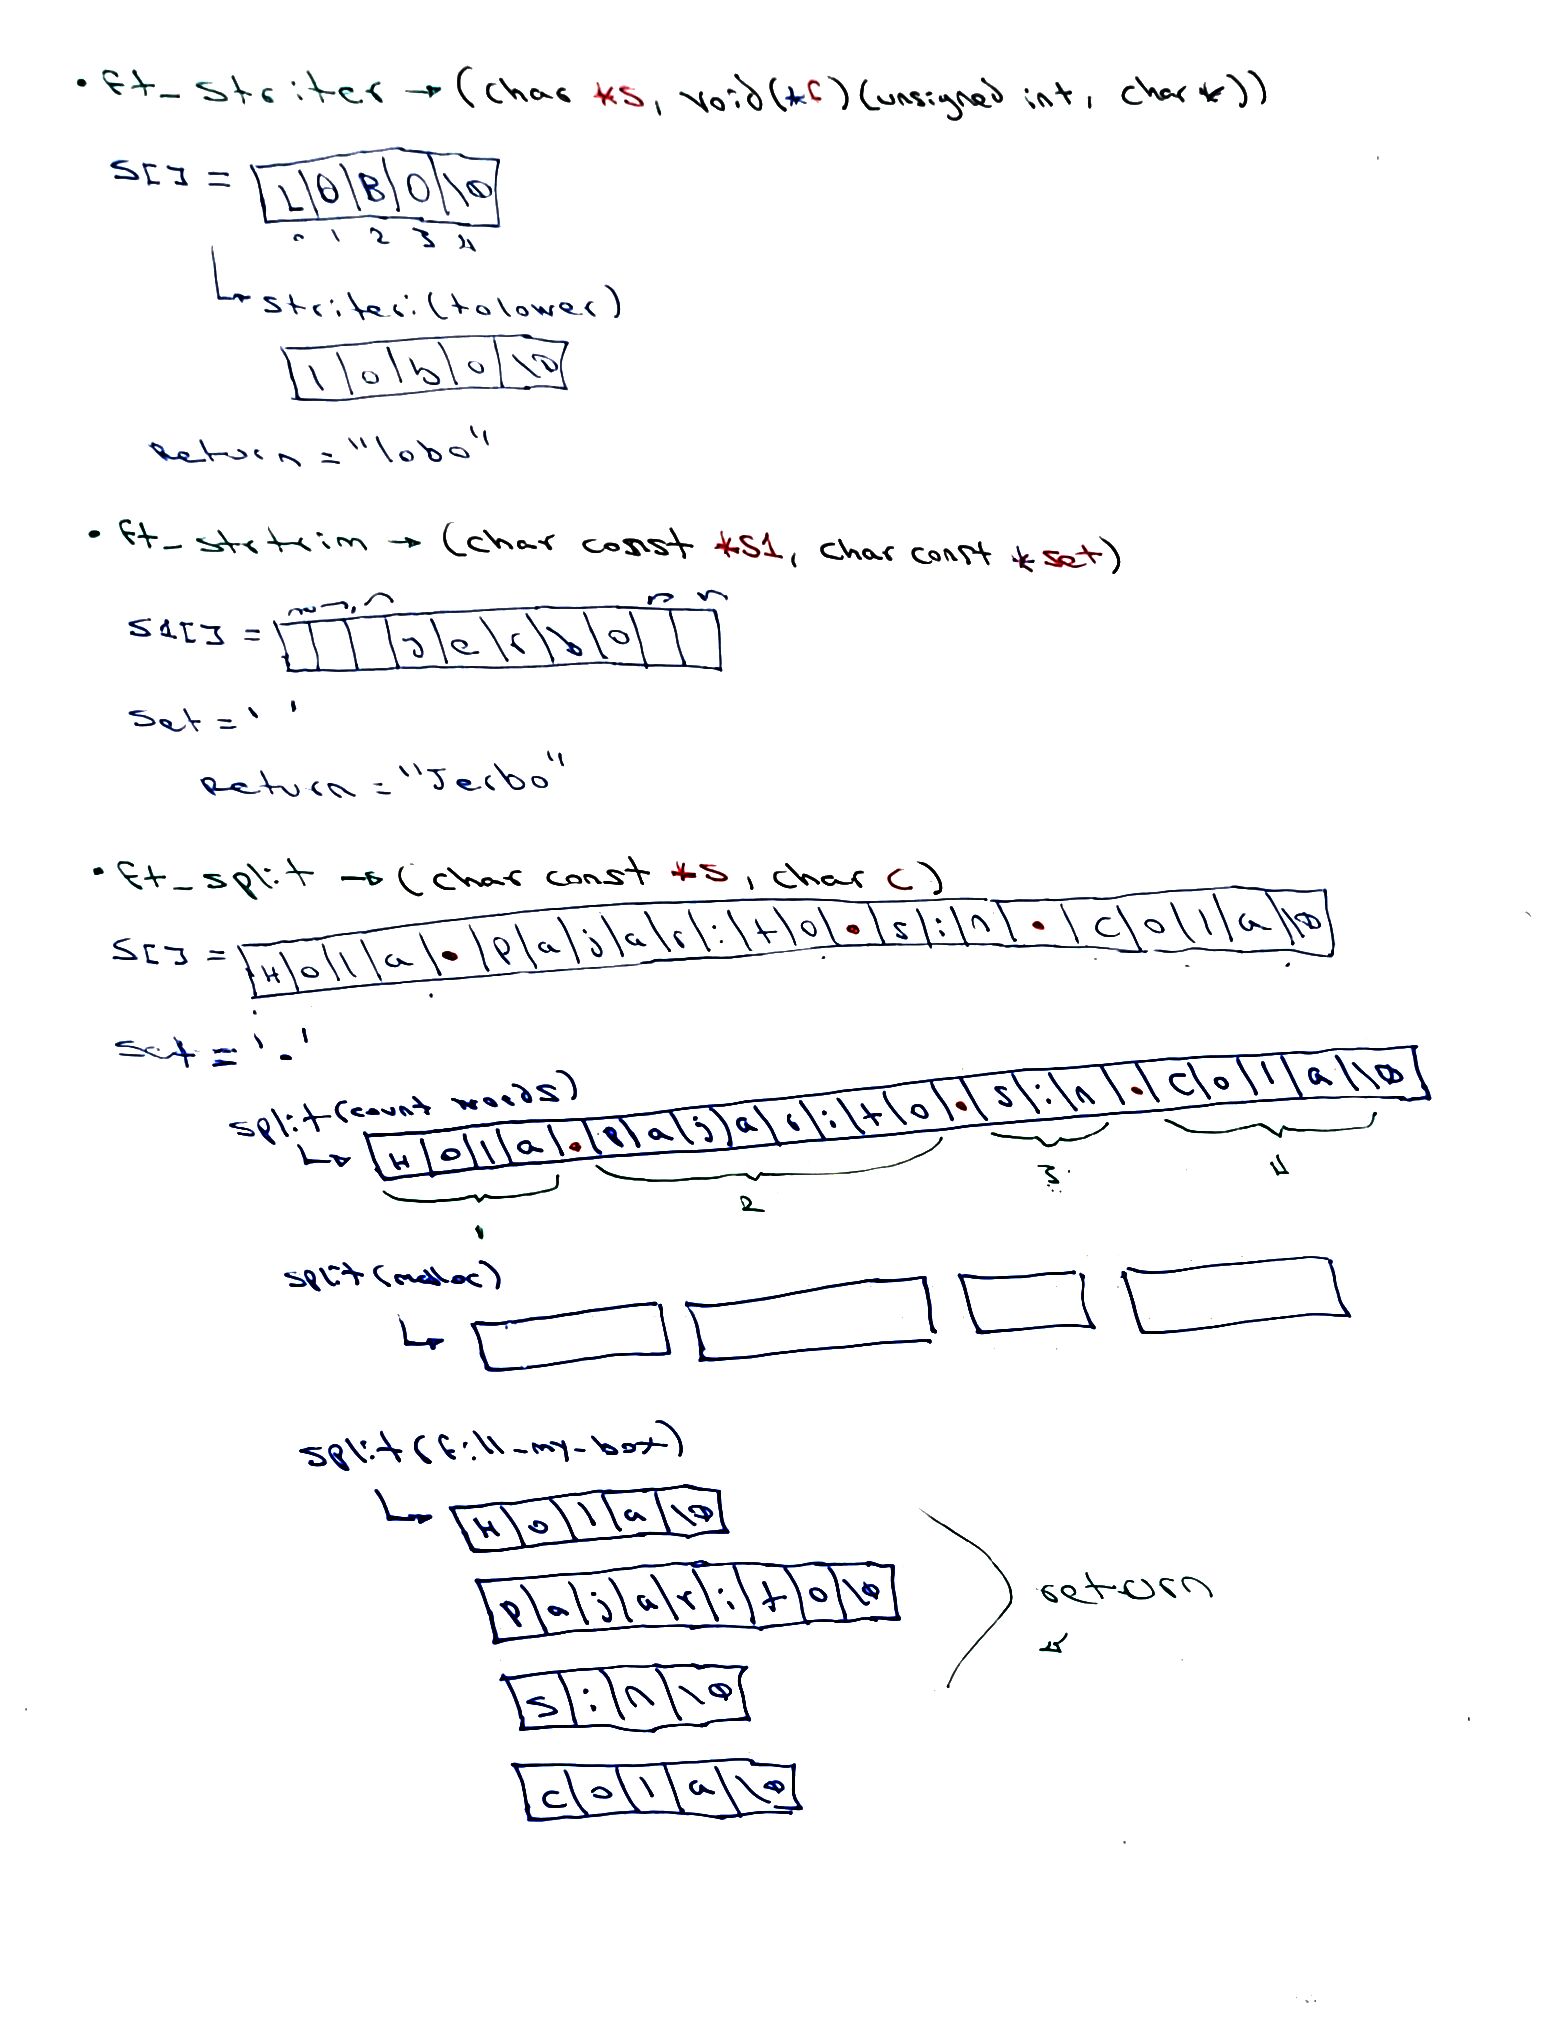 • ft_striter → (char *s, void(*f)(unsigned int, char*))
S[] = L|O|B|O|\0
0 1 2 3 4
striteri(tolower)
l|o|b|o|\0
Return = "lobo"
• ft_strtrim → (char const *S1, char const *set)
S1[] = | | |j|e|r|b|o| | |
Set = ' '
Return = "Jerbo"
• ft_split → (char const *s, char c)
S[] = H|o|l|a|.|P|a|j|a|r|i|t|o|.|s|i|n|.|c|o|l|a|\0
Set = '.'
split(count words)
H|o|l|a|.|P|a|j|a|r|i|t|o|.|s|i|n|.|c|o|l|a|\0
1 2 3 4
split(malloc)
split(fill-my-box)
H|o|l|a|\0
P|a|j|a|r|i|t|o|\0
return
S|i|n|\0
C|o|l|a|\0